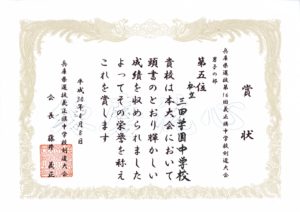 賞状
兵庫県選抜第16回義正旗中学校剣道大会
男子の部
第五位
三田学園中学校
貴校は本大会において
頭書のとおり輝かしい
成績を収められました
よってその栄誉を称え
これを賞します
平成30年4月8日
兵庫県選抜義正旗中学校剣道大会
会長 藤井義正